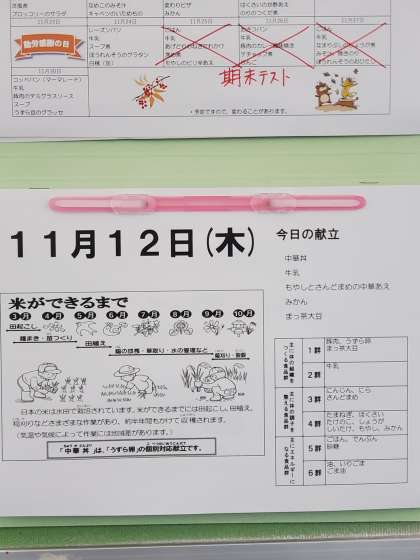 洋風煮
ブロッコリーのサラダ
なめこのみそ汁
キャベツのいためもの
変わりピザ
みかん
はくさいの甘酢あえ
のりのつくだ煮
11月23日
11月24日
11月25日
11月26日
11月27日
勤労感謝の日
レーズンパン
牛乳
スープ煮
ほうれんそうのグラタン
ごはん
牛乳
もやしのピリ辛あえ
牛乳
りんご
ごはん
牛乳
ほうれんそうのおひたし
期末テスト
11月30日
コッペパン(マーマレード)
牛乳
豚肉のデルグラスソース
スープ
うずら豆のグラッセ
・予定ですので、変わることがあります。
11月12日(木)
今日の献立
中華丼
牛乳
もやしとさんどまめの中華あえ
みかん
まっ茶大豆
米ができるまで
3月 4月 5月 6月 7月 8月 9月 10月
田起こし
種まき・苗つくり
田植え
稲の成長・草取り・水の管理など
稲刈り・脱穀
日本の米は水田で栽培されています。米ができるまでには田起こし、田植え、
稲刈りなどさまざまな作業があり、約半年間もかけて収穫されます。
(気温や気候によって作業には地域差があります。)
「中華丼」は、「うずら卵」の個別対応献立です。
主に体の組織をつくる食品群
1群
豚肉、うずら卵
まっ茶大豆
2群
牛乳
主に体の調子を整える食品群
3群
にんじん、にら
さんどまめ
4群
たまねぎ、はくさい
たけのこ、しょうが
しいたけ、もやし、みかん
主にエネルギーになる食品群
5群
ごはん、でんぷん
砂糖
6群
油、いりごま
ごま油